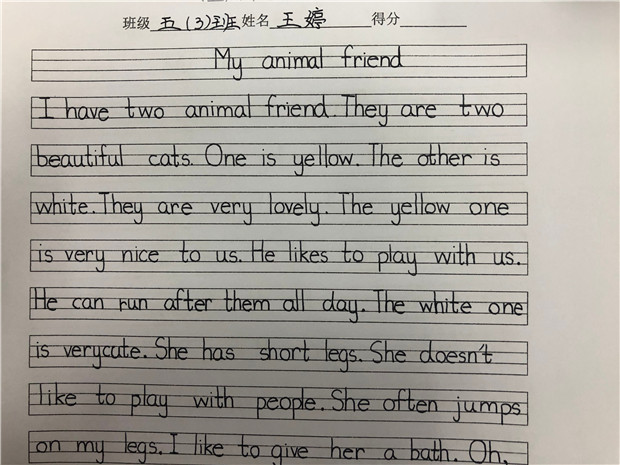 班级 五(3)班 姓名 王婷 得分
My animal friend
I have two animal friend. They are two
beautiful cats. One is yellow. The other is
white. They are very lovely. The yellow one
is very nice to us. He likes to play with us.
He can run after them all day. The white one
is verycute. She has short legs. She doesn't
like to play with people. She often jumps
on my legs. I like to give her a bath. Oh,